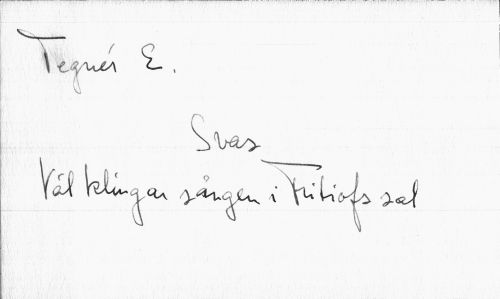 Tegnér E.
Svar
Väl klingar sången i Fritiofs sal